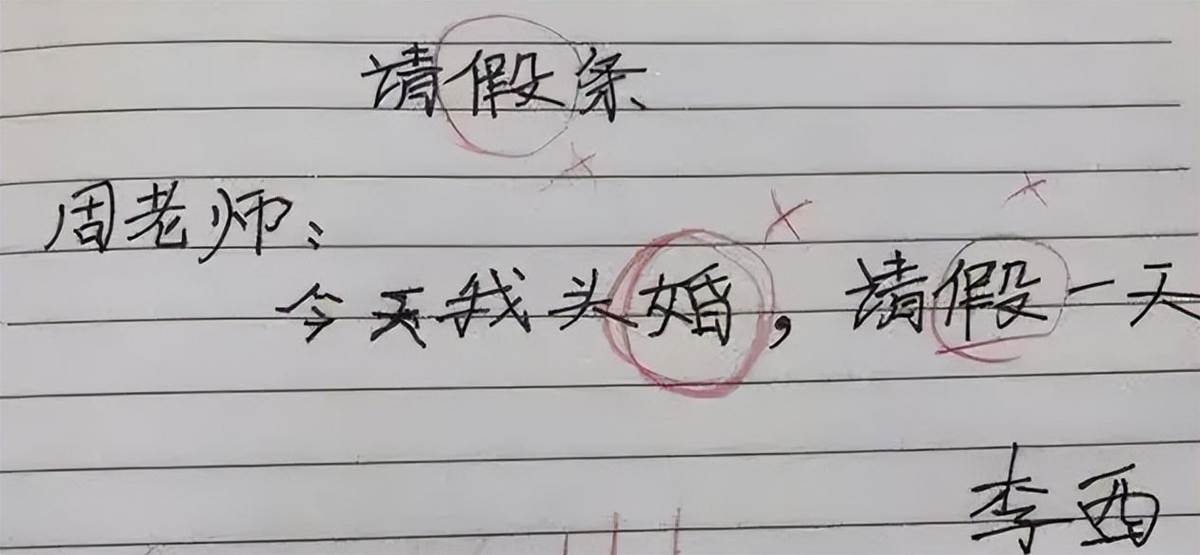 请假条
周老师：
今天我头婚，请假一天
李西